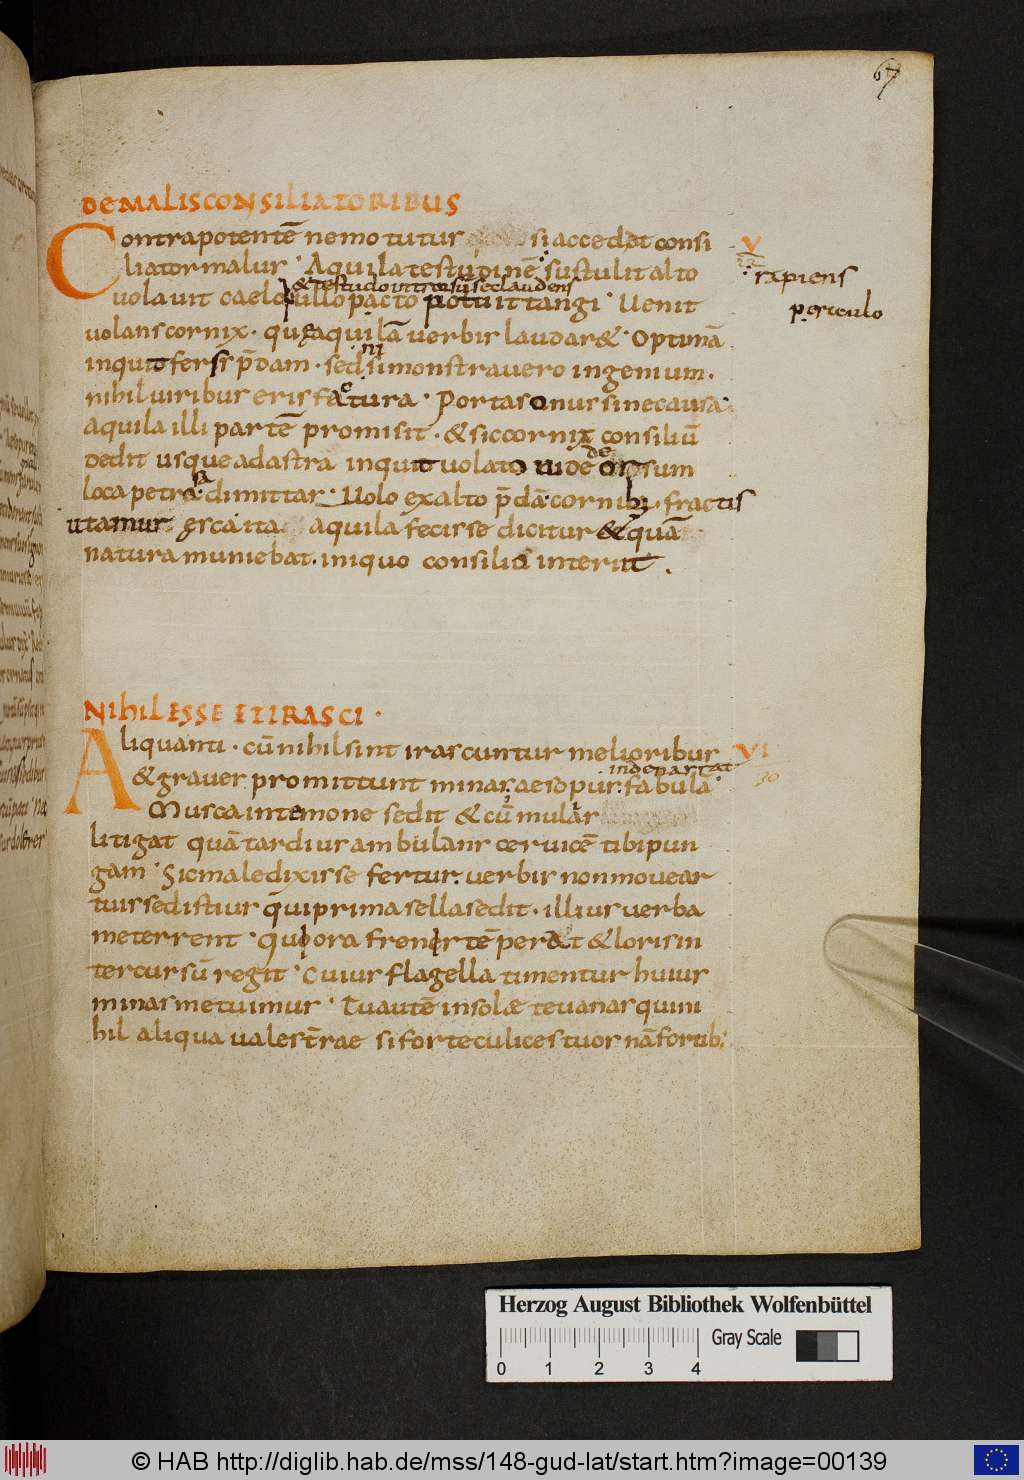 67
DE MALIS CONSILIATORIBUS
Contra potentē nemo tutus si accedet consi
V
liator malus. Aquila testudinē sustulit alto
rapiens
& testudo introrsū se claudens
volavit caelo nullo pacto potuit tangi. Venit
periculo
volans cornix. quę aquilā verbis laudar&. Optimā
ni
inquit fers p̄dam. sed si monstravero ingenium.
e
nihil viribus eris fatura. Portas onus sine causa
aquila illi partē promisit. & sic cornix consiliū
de
dedit usque ad astra inquit volato
sum
sa
loca petra dimittas. Volo ex alto p̄da cornib; fractis
utamur ęsca ita aquila fecisse dicitur & quā
natura muniebat. iniquo consilio interiit.
NIHIL ESSE ET IRASCI.
Aliquanti. cū nihil sint irascuntur melioribus
VI
inde partat
30
& graves promittunt minas. aesopus. fabula
Musca in temone sedit & cū mulas
litigat quā tardius ambulans cervicē tibi pun
gam. Sic maledixisse fertur. verbis non movear
tuis sed istius qui prima sella sedit. illius verba
me terrent. Qui ora frenis tēperat & loris in
tercursū regit. Cuius flagella timentur huius
minas metuimus. Tu autē insolae te vanas qui ni
hil aliqua vales t̄rae si forte culices tuos nā fortib;
Herzog August Bibliothek Wolfenbüttel
Gray Scale
0 1 2 3 4
© HAB http://diglib.hab.de/mss/148-gud-lat/start.htm?image=00139